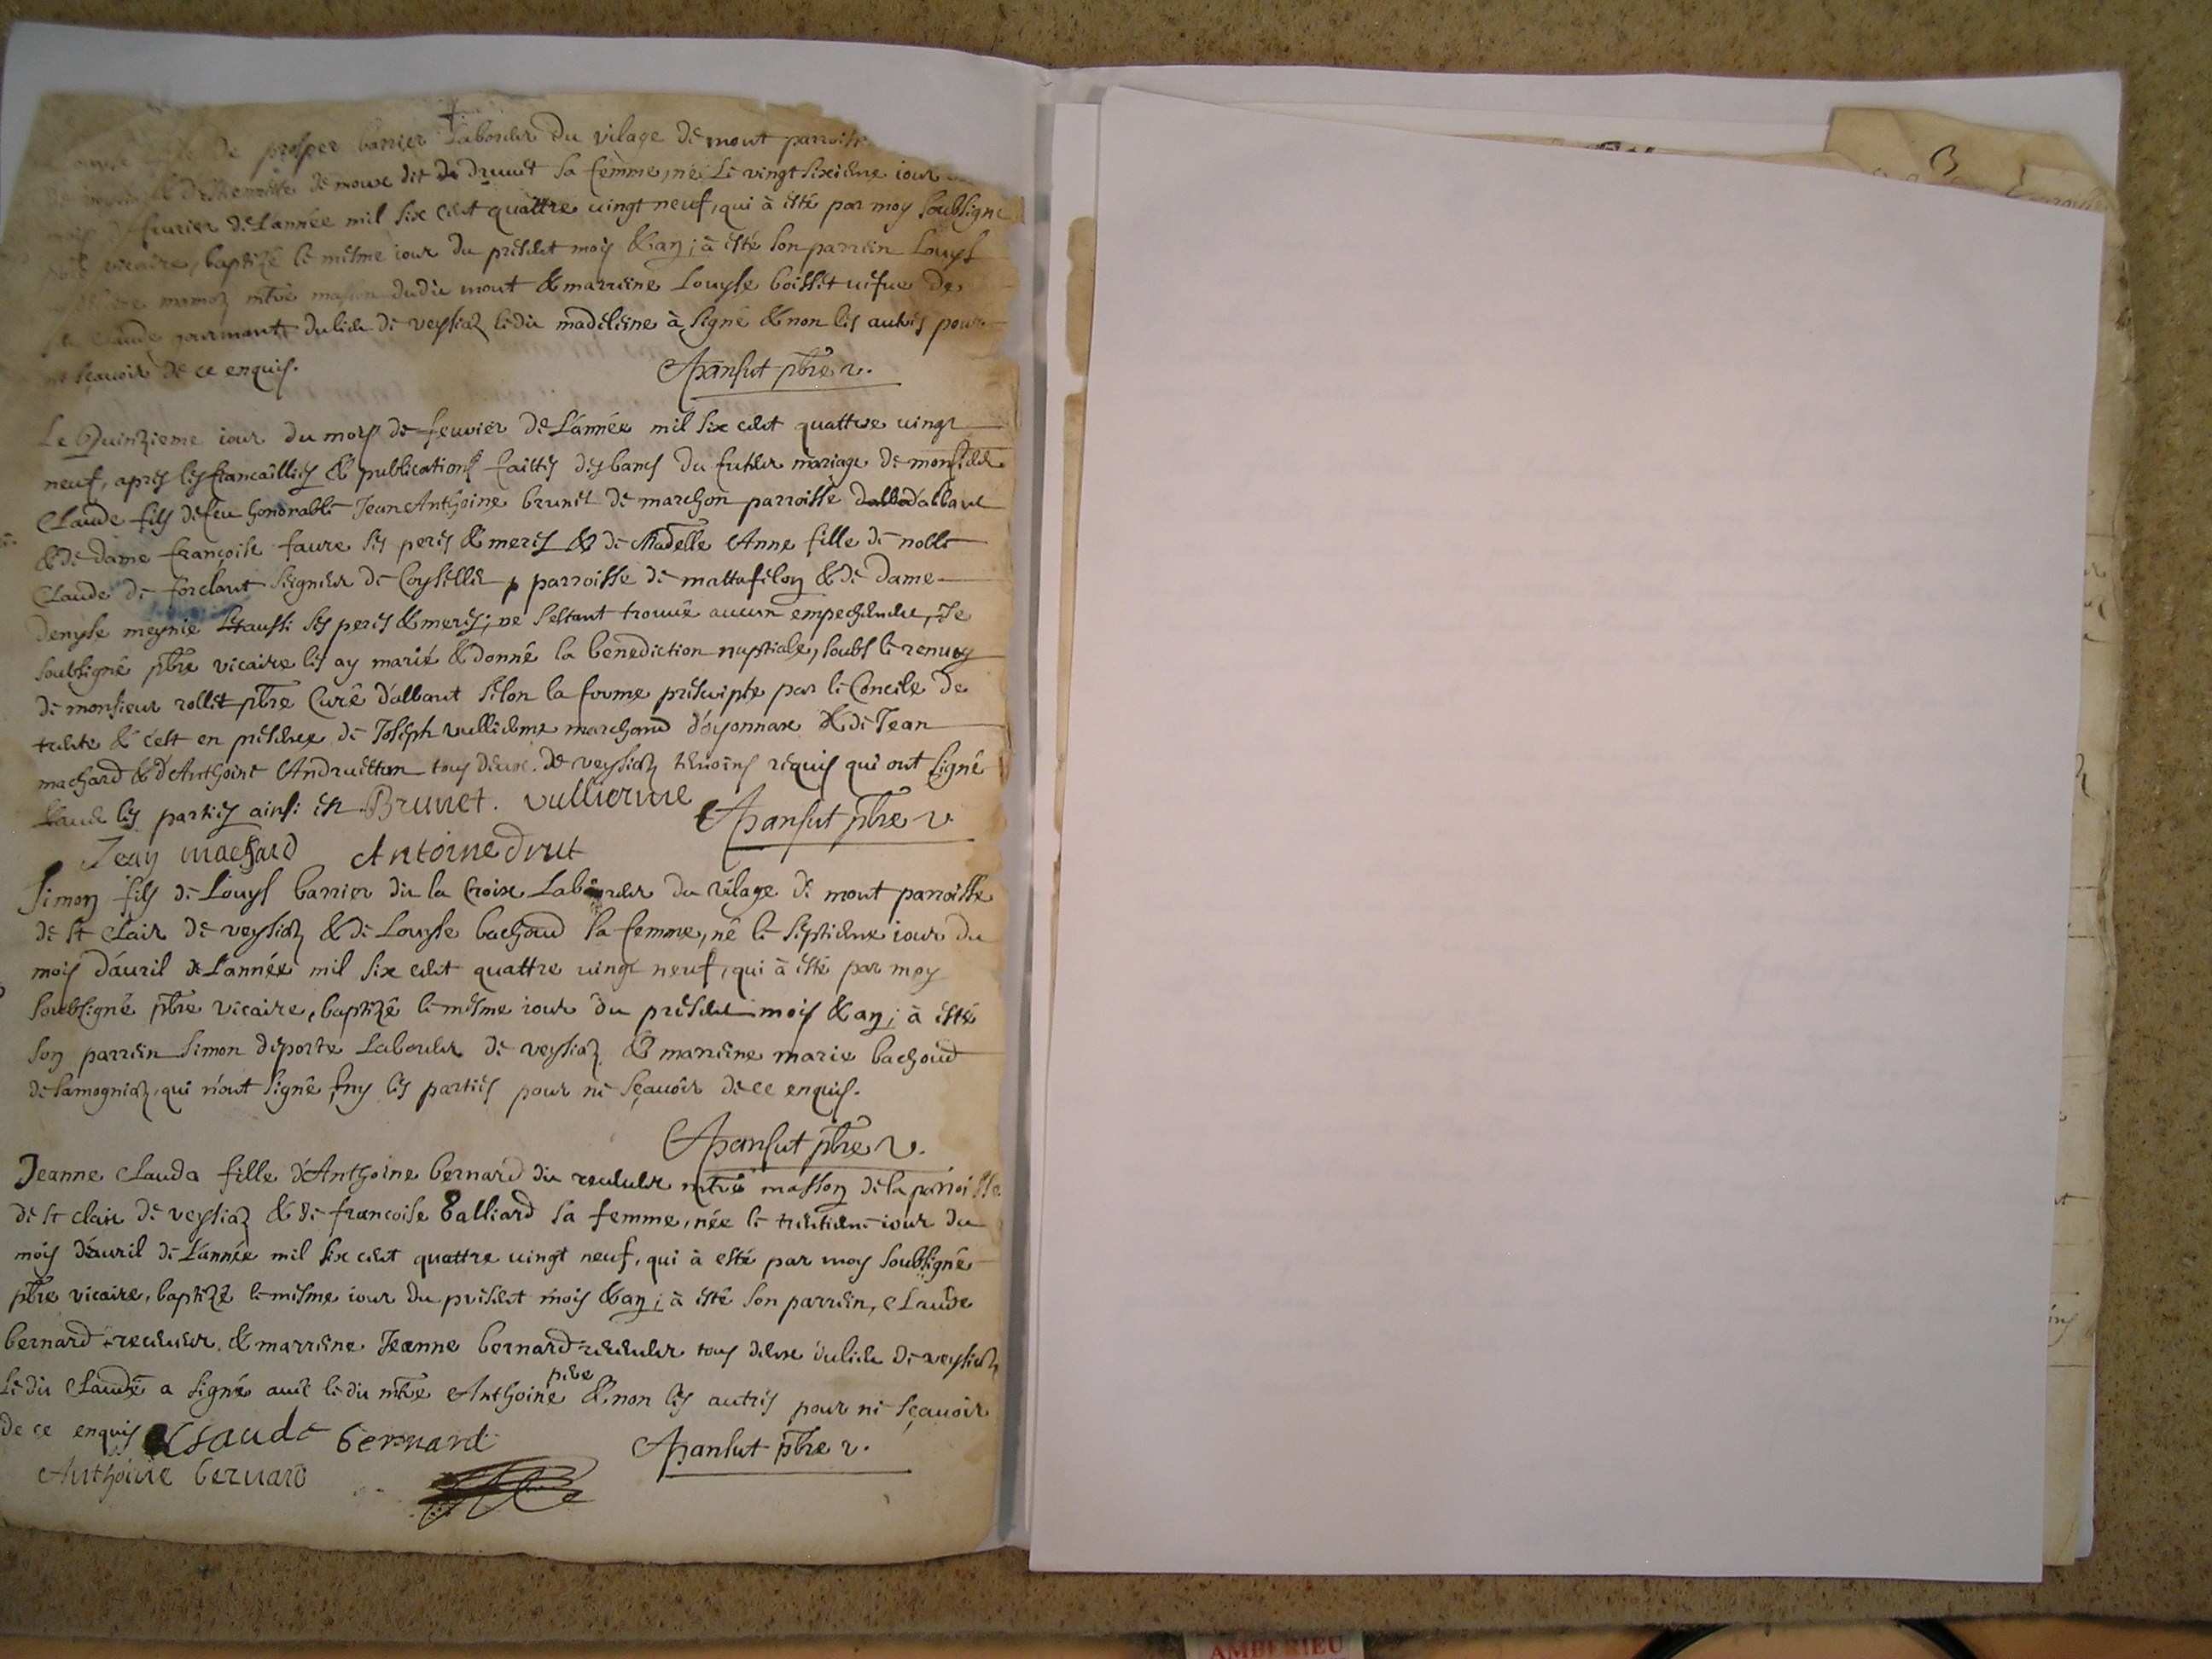 de prosper barrier Laboureur du vilage de mont parroisse
de mour dit de drunet sa femme, né le vingt sixieme iour
mois de feurier de L'année mil six cent quattre uingt neuf, qui à esté par moy soubsigné
vicaire, baptizé le mesme iour du present mois & an; à esté son parrein Louys
mtre masson dudit mont & marreine Louyse boisset uefue de
Claude du lieu de veysiaz ledit madeleine à signé & non les autres pour
ne sçauoir de ce enquis.
Chansut pbre v.
Le Quinzieme iour du moys de feuvrier de L'année mil six cent quattre uingt
neuf, apres les fiancailles & publications faittes des bancs du futur mariage de monsieur
Claude fils de feu honorable Jean Anthoine brunet de marchon parroisse d'allbant
& de dame françoise faure ses peres & meres & de Madelle Anne fille de noble
Claude de forclant seigneur de Coyselet parroisse de mattafelon & de dame
Denyse meynie aussi ses peres & meres; ne s'estant trouué aucun empechement, Je
soubsigné pbre vicaire les ay marié & donné la benediction nuptiale, soubs le renuoy
de monsieur rollet pbre Curé d'albant selon la forme prescripte par le Concile de
trente & c'est en presence de Joseph vulliermes marchand d'oyonnax & de Jean
machard & d'Anthoine Andruetton tous deux de veysiaz temoins requis qui ont signé
auec les parties ainsi est Brunet. vullierme
Chansut pbre v
Jean machard Antoine drut
Simon fils de Louys barrier dit la Croix Laboureur du vilage de mont parroisse
de st Clair de veysiaz & de Louyse bachoud sa femme, né le septieme iour du
mois d'auril de L'année mil six cent quattre uingt neuf, qui à esté par moy
soubsigné pbre vicaire, baptizé le mesme iour du present mois & an; à esté
son parrein simon deporte Laboureur de veysiaz & marreine marie bachoud
de samogniaz, qui n'ont signé ny les parties pour ne sçauoir de ce enquis.
Chansut pbre v.
Jeanne Clauda fille d'Anthoine bernard dit reculeur mtre masson de la parroisse
de st clair de veysiaz & de francoise Talliard sa femme, née le trentieme iour du
mois d'auril de L'année mil six cent quattre uingt neuf, qui à esté par moy soubsigné
pbre vicaire, baptizé le mesme iour du present mois & an; à esté son parrein, Claude
bernard reculeur, & marreine Jeanne bernard reculeur tous deux du lieu de veysiaz
Ledit Claude a signé auec ledit mtre Anthoine pere & non les autres pour ne sçauoir
de ce enquis Claude bernard
Chansut pbre v.
Anthoine bernard
AMBERIEU